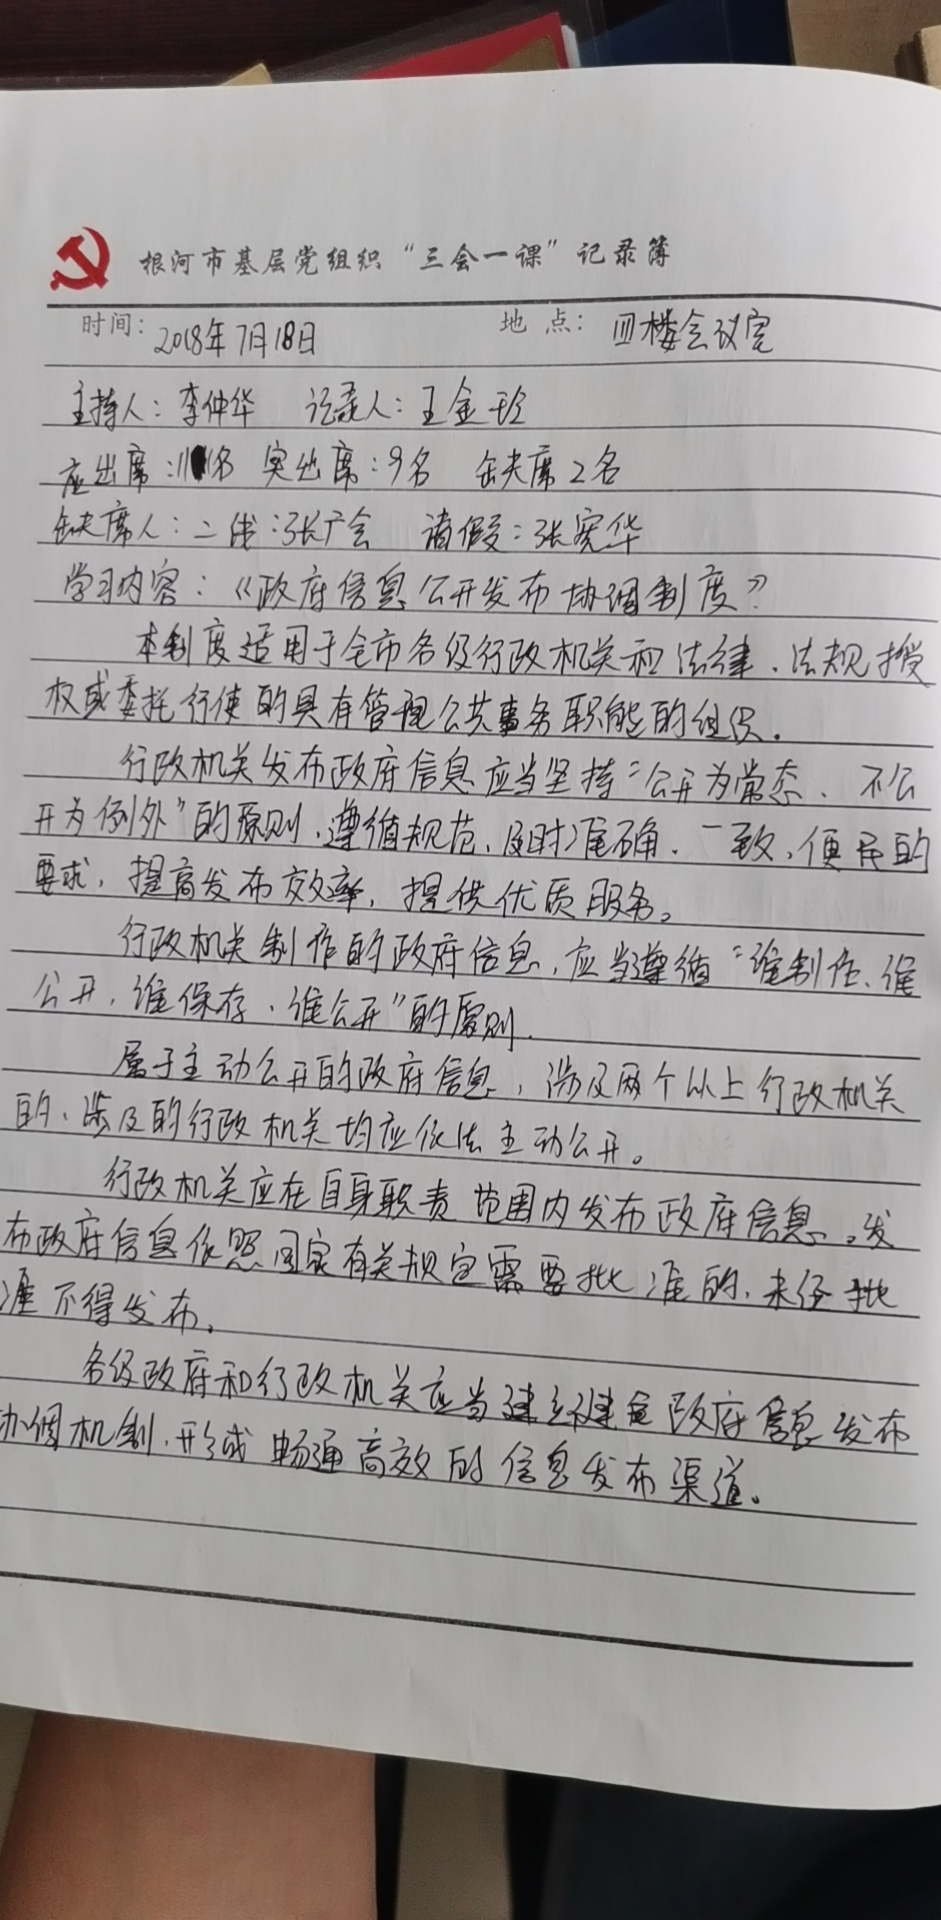 根河市基层党组织“三会一课”记录簿
时间：2018年7月18日 地点：四楼会议室
主持人：李仲华 记录人：王金玲
应出席：11名 实出席：9名 缺席2名
缺席人：二线：张广会 请假：张宪华
学习内容：《政府信息公开发布协调制度》
本制度适用于全市各级行政机关和法律、法规授
权或委托行使的具有管理公共事务职能的组织.
行政机关发布政府信息应当坚持“公开为常态、不公
开为例外”的原则,遵循规范、及时准确、一致,便民的
要求,提高发布效率,提供优质服务。
行政机关制作的政府信息,应当遵循“谁制作、谁
公开,谁保存、谁公开”的原则.
属于主动公开的政府信息,涉及两个以上行政机关
的、涉及的行政机关均应依法主动公开。
行政机关应在自身职责范围内发布政府信息。发
布政府信息依照国家有关规定需要批准的、未经批
准不得发布。
各级政府和行政机关应当建立健全政府信息发布
协调机制,形成畅通高效的信息发布渠道。